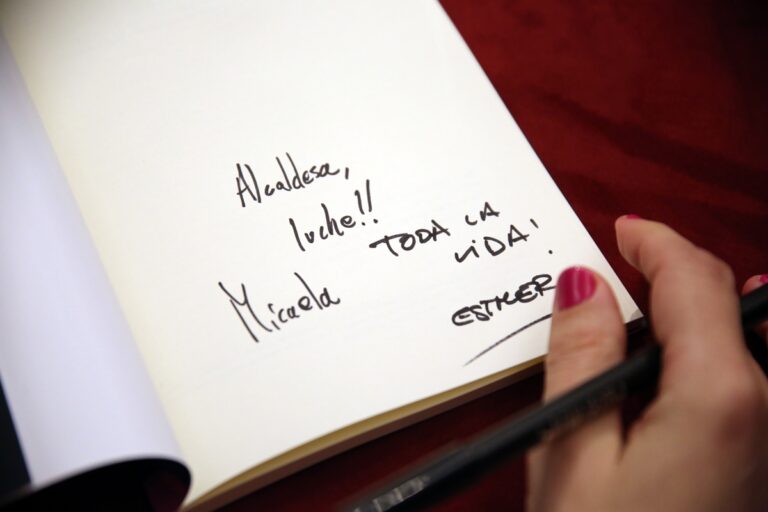 Alcaldesa,
luche!!
Micaela
TODA LA
VIDA!
ESTHER